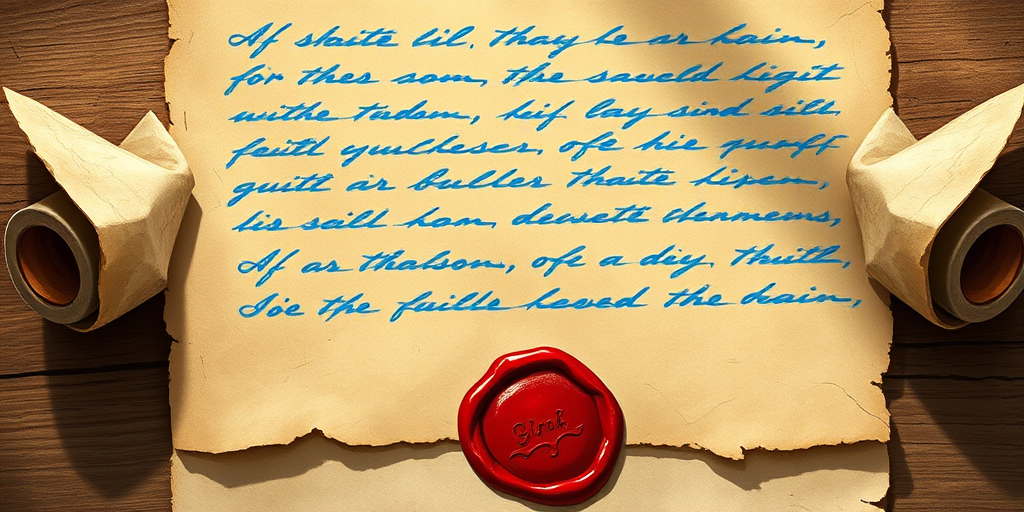 Af slaite lil. thay be ar hain,
for thes som, the saveld ligit
withe tadom, heif lay sind sill
feitl yuulheser, ofe hie guaff
guitt air buller thaite lipen,
lis saill hom, deweté
Af ar thalson, ofe a diy. thuitl,
the fuille haved the hain,